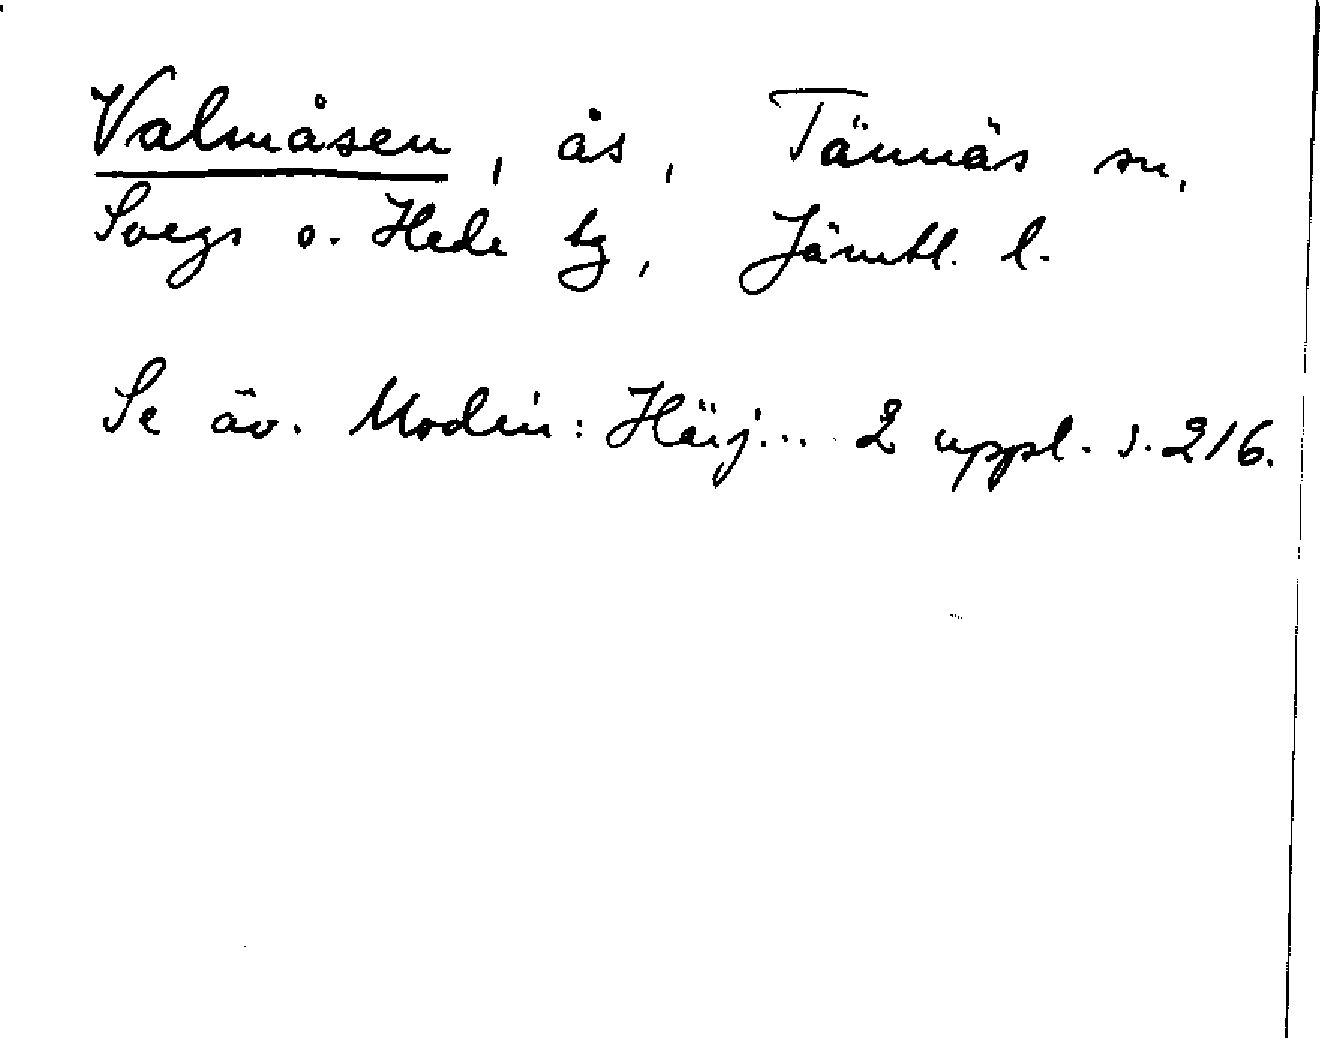 Valmåsen, ås, Tännäs sn,
Svegs o. Hede tg, Jämtl. l.
Se äv. Modin: Härj... 2 uppl. s. 216.